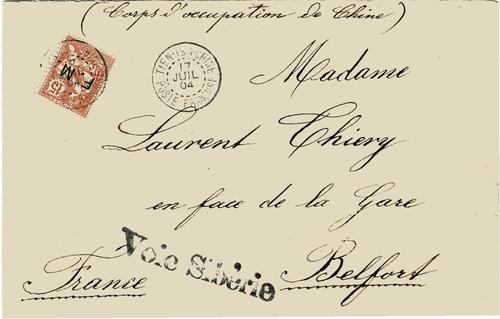 (Corps d'occupation de Chine)
F.M
15
TIEN-TSIN-CHINE
17
JUIL
04
POSTE FRANÇAISE
Madame
Laurent Thiery
en face de la Gare
Voie Sibérie
France
Belfort